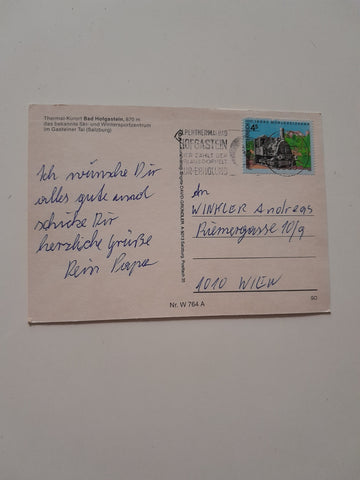 Thermal-Kurort Bad Hofgastein, 870 m
das bekannte Ski- und Wintersportzentrum
im Gasteiner Tal (Salzburg)
Ich wünsche Dir
alles gute und
schicke Dir
herzliche Grüße
Dein Papa
ALPENTHERMALBAD
HOFGASTEIN
KUR-ERHOLUNG
4S
An
WINKLER Andreas
Riemergasse 10/9
1010 WIEN
Nr. W 764 A
90